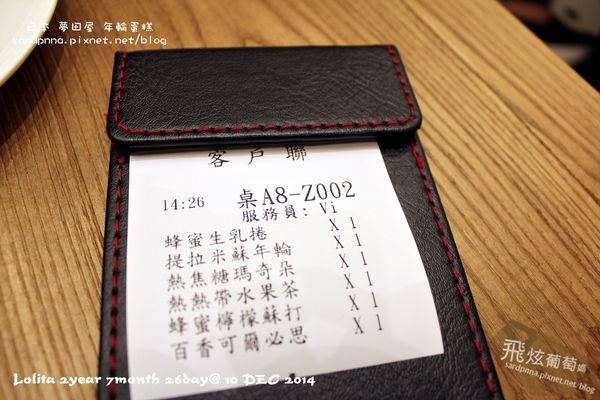 日本 夢田屋 年輪蛋糕
sardpnna.pixnet.net/blog
客戶聯
14:26 桌A8-Z002
服務員: Vi
蜂蜜生乳捲 X 1
提拉米蘇年輪 X 1
熱焦糖瑪奇朵 X 1
熱熱帶水果茶 X 1
蜂蜜檸檬蘇打 X 1
百香可爾必思 X 1
飛炫葡萄媽
sardpnna.pixnet.net/blog
Lolita 2year 7month 26day@ 10 DEC 2014